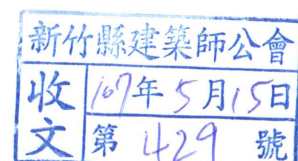 新竹縣建築師公會
收文
107年5月15日
第429號